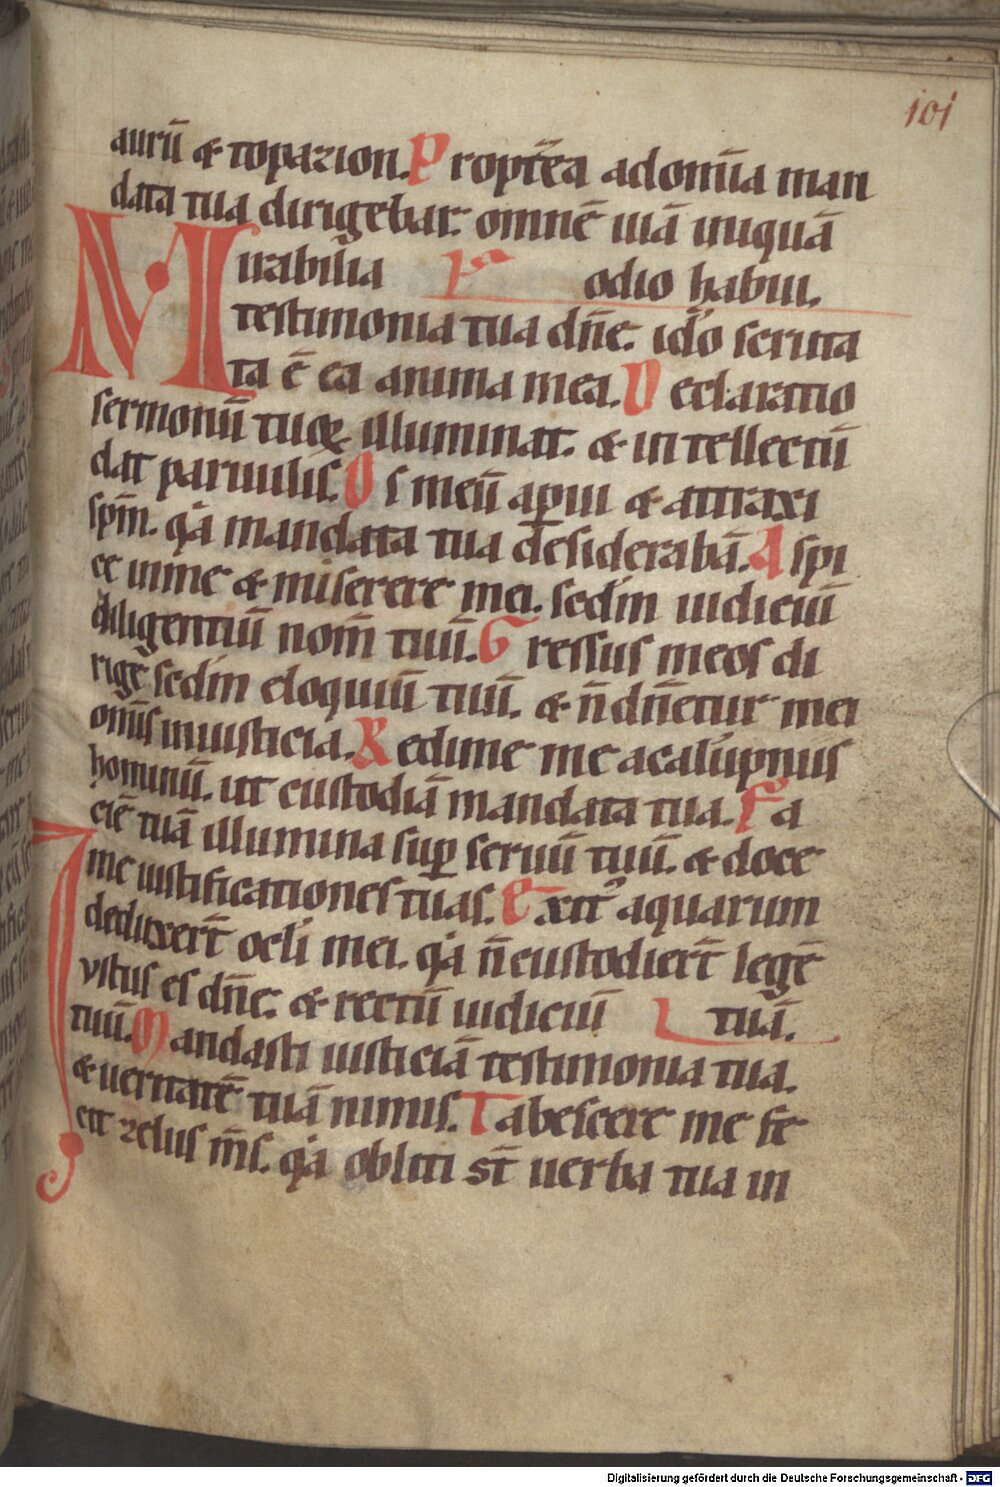 101
aurū & topazion. Propt̄ea ad om̄ia man
data tua dirigebar. omnē uiā iniquā
Mirabilia odio habui.
testimonia tua dn̄e. ido scruta
ta ē ea anima mea. Declaratio
sermonū tuoꝝ illuminat. & intellectū
dat paruulis. Os meū aperui & attraxi
sp̄m. qa mandata tua desiderabā. Aspi
ce in me & miserere mei. scd̄m iudiciū
diligentiū nom̄ tuū. Gressus meos di
rige scd̄m eloquiū tuū. & n̄ dn̄etur mei
om̄is iniusticia. Redime me a calūpniis
hominū. ut custodiā mandata tua. Fa
ciē tuā illumina sup̄ seruū tuū. & doce
me iustificationes tuas. Exit aquarum
deduxert̄ ocli mei. qa n̄ custodiert̄ legē
Iustus es dn̄e. & rectū iudiciū tuā.
tuū. Mandasti iusticiā testimonia tua.
& ueritatē tuā nimis. Tabescere me fe
cit zelus m̄s. qa obliti st̄ uerba tua in
Digitalisierung gefördert durch die Deutsche Forschungsgemeinschaft - DFG